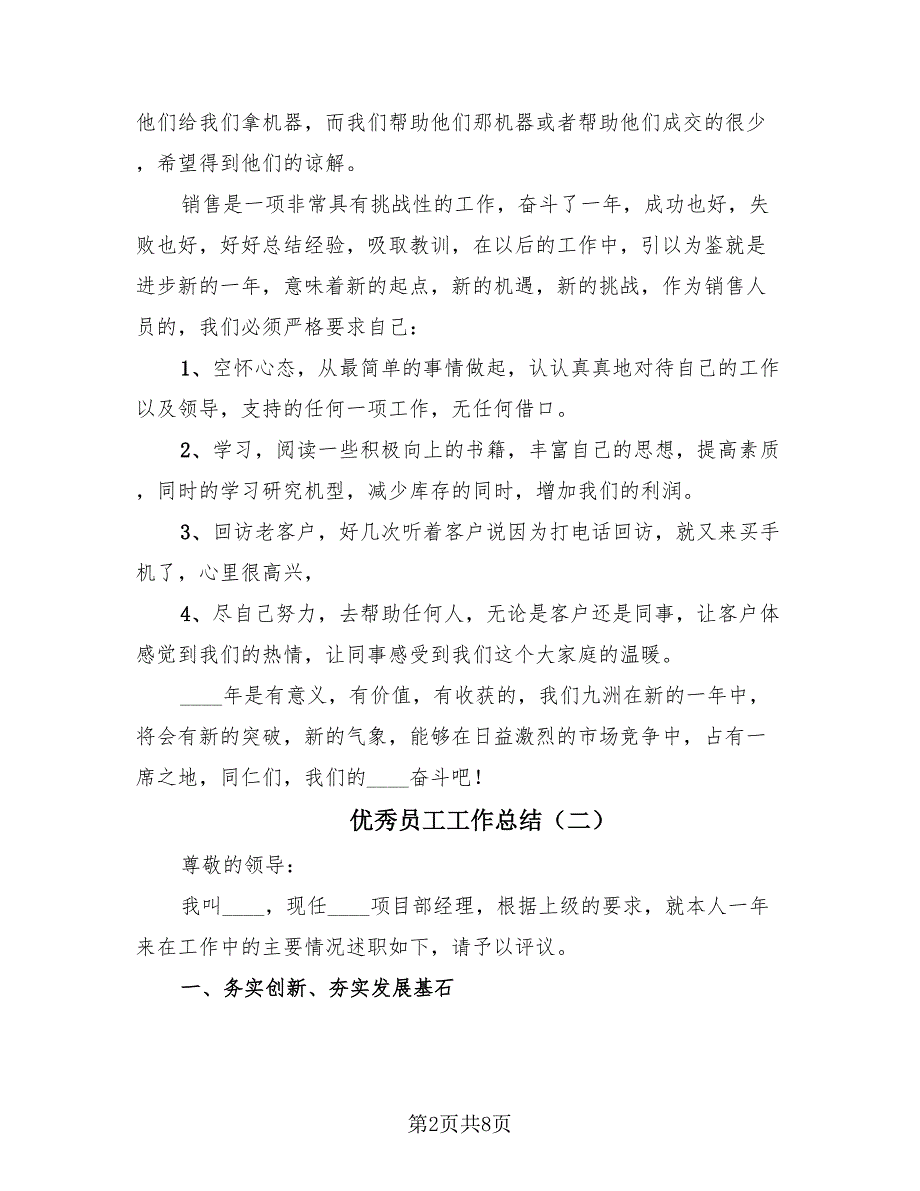 他们给我们拿机器，而我们帮助他们那机器或者帮助他们成交的很少
，希望得到他们的谅解。
销售是一项非常具有挑战性的工作，奋斗了一年，成功也好，失
败也好，好好总结经验，吸取教训，在以后的工作中，引以为鉴就是
进步新的一年，意味着新的起点，新的机遇，新的挑战，作为销售人
员的，我们必须严格要求自己：
1、空怀心态，从最简单的事情做起，认认真真地对待自己的工作
以及领导，支持的任何一项工作，无任何借口。
2、学习，阅读一些积极向上的书籍，丰富自己的思想，提高素质
，同时的学习研究机型，减少库存的同时，增加我们的利润。
3、回访老客户，好几次听着客户说因为打电话回访，就又来买手
机了，心里很高兴，
4、尽自己努力，去帮助任何人，无论是客户还是同事，让客户体
感觉到我们的热情，让同事感受到我们这个大家庭的温暖。
____年是有意义，有价值，有收获的，我们九洲在新的一年中，
将会有新的突破，新的气象，能够在日益激烈的市场竞争中，占有一
席之地，同仁们，我们的____奋斗吧！
优秀员工工作总结（二）
尊敬的领导：
我叫____，现任____项目部经理，根据上级的要求，就本人一年
来在工作中的主要情况述职如下，请予以评议。
一、务实创新、夯实发展基石
第2页共8页